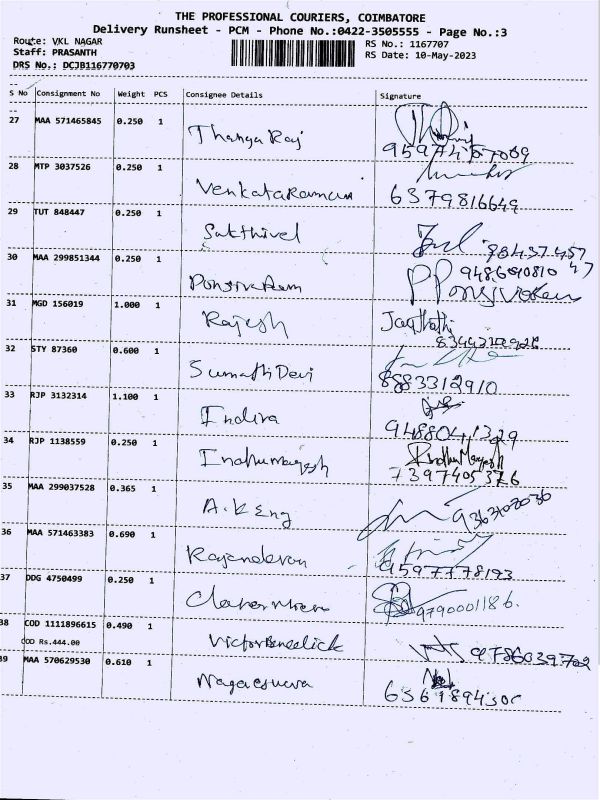 THE PROFESSIONAL COURIERS, COIMBATORE
Delivery Runsheet - PCM - Phone No.:0422-3505555 - Page No.:3
Route: VKL NAGAR
RS No.: 1167707
Staff: PRASANTH
RS Date: 10-May-2023
DRS No.: DCJB116770703
S No Consignment No Weight PCS Consignee Details Signature
27 MAA 571465845 0.250 1 Thanga Raj
28 MTP 3037526 0.250 1 VenkataRaman 6379816649
29 TUT 848447 0.250 1 Sakthivel
30 MAA 299851344 0.250 1
31 MGD 156019 1.000 1 Rajesh
32 STY 87360 0.600 1 Sumathi Devi 8883312910
33 RJP 3132314 1.100 1 Indira 9488041329
34 RJP 1138559 0.250 1 Indhumagesh
7397405376
35 MAA 299037528 0.365 1 A.K Eng
36 MAA 571463383 0.690 1
9597778193
37 DDG 4750499 0.250 1 9790001186.
38 COD 1111896615 0.490 1 Victor Benedick 9786039702
COD Rs.444.00
39 MAA 570629530 0.610 1